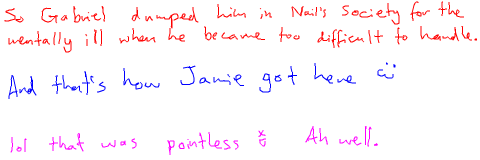 So Gabriel dumped him in Nail's Society for the
mentally ill when he became too difficult to handle.
And that's how Jamie got here
lol that was pointless Ah well.